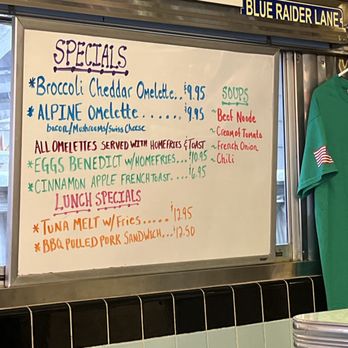 BLUE RAIDER LANE
SPECIALS
*Broccoli Cheddar Omelette..$9.95
*ALPINE Omelette......$9.95
Bacon/Mushrooms/Swiss Cheese
ALL OMELETTES SERVED WITH HOMEFRIES & TOAST
*EGGS BENEDICT W/HOMEFRIES....$10.95
*CINNAMON APPLE FRENCH TOAST....$6.95
LUNCH SPECIALS
*TUNA MELT W/Fries.....$12.95
*BBQ PULLED PORK SANDWICH...$12.50
SOUPS
~Beef Noodle
~Cream of Tomato
~French Onion
~Chili